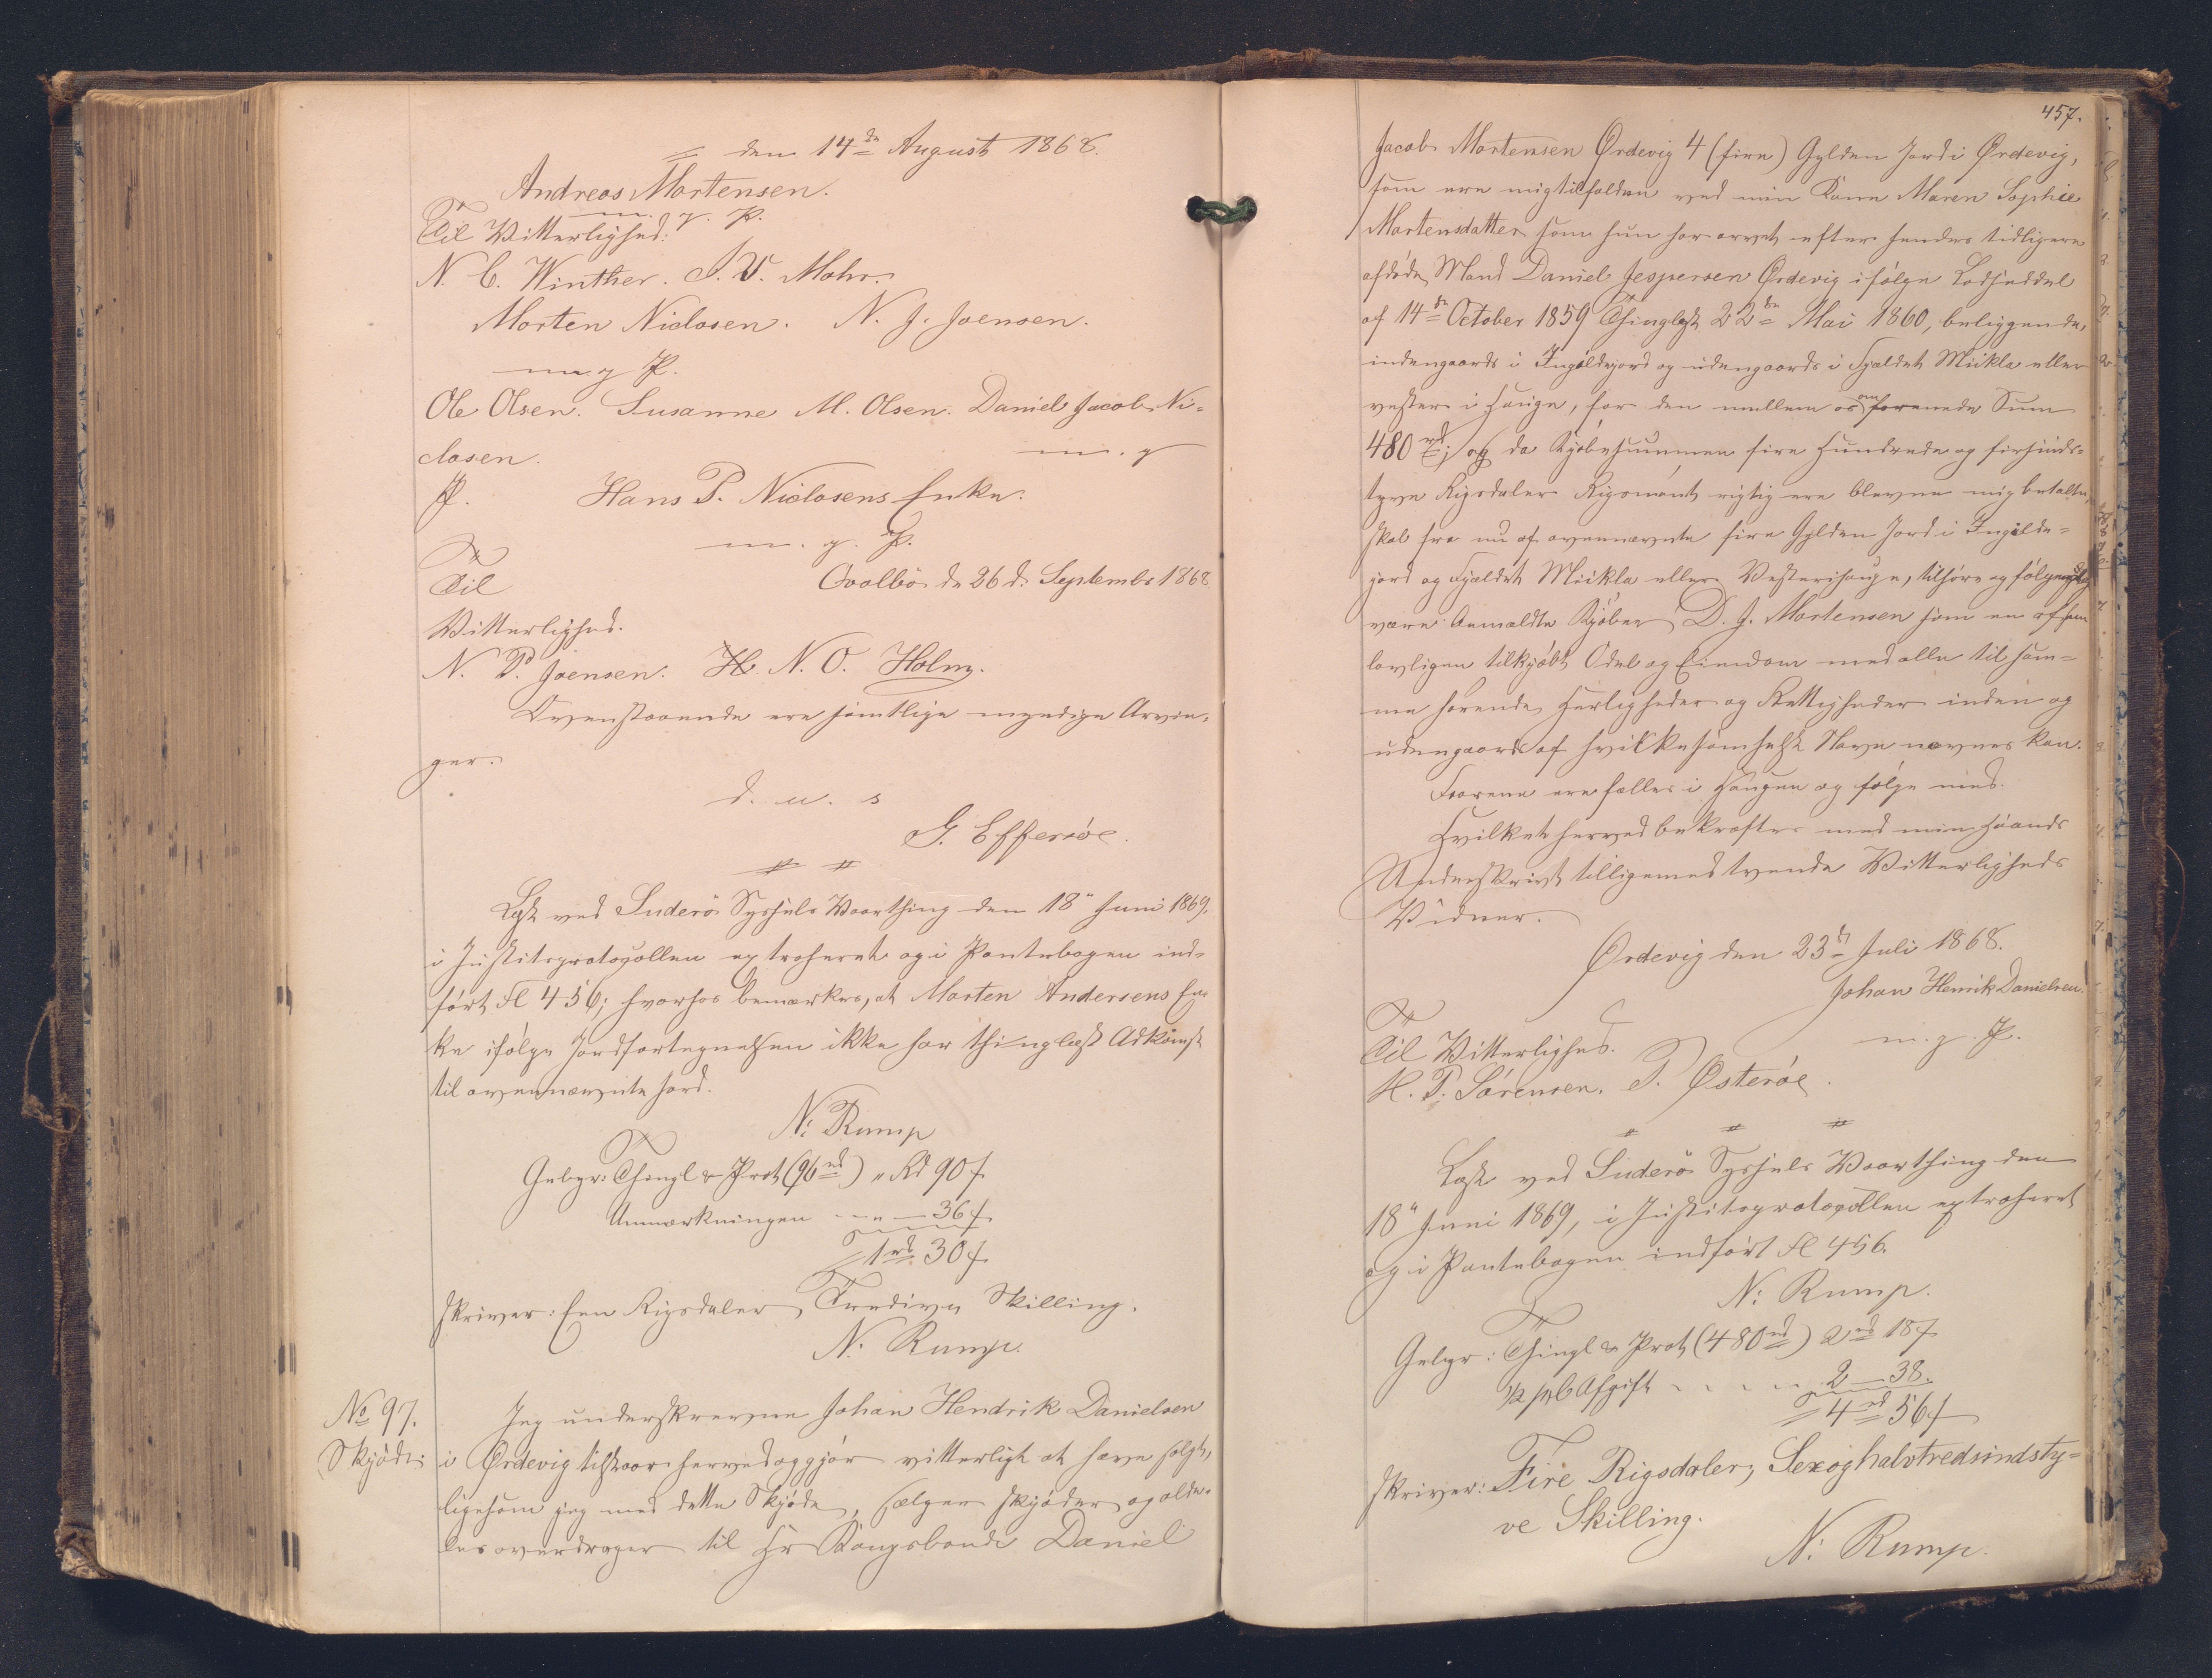 den 14de August 1868.
Andreas Mortensen.
m. g. P.
Til Vitterlighed:
N. C. Winther. J. V. Mohr.
Morten Niclasen. N. J. Joensen.
m. g. P.
Ole Olsen. Susanne M. Olsen. Daniel Jacob Ni-
clasen. m. g
P. Hans P. Niclasens Enke.
m. g. P.
Til Qvalbö d. 26 d. September 1868
Vitterlighed.
N. P. Joensen. H. N. O. Holm.
Ovenstaaende ere samtlige myndige Arvin-
ger.
d. u. s
G. Effersöe.
Læst ved Suderö Syssels Vaarthing den 18" Juni 1869,
i Justitsprotocollen extraheret og i Pantebogen ind-
ført Fl 456; hvorhos bemærkes, at Morten Andersens En-
ke ifølge Jordfortegnelsen ikke har thinglæst Adkomst
til ovennævnte Jord.
N: Rump
Gebyr: Thingl & Prot (96 rd) " Rd 90 s
Anmærkningen - " - 36 s
1 rd 30 s
skriver: Een Rigsdaler, Tredive Skilling.
N: Rump.
No 97. Jeg underskrevne Johan Hendrik Danielsen
Skjöde: i Ördevig tilstaar herved og gjör vitterligt at have solgt,
ligesom jeg med dette Skjöde, sælger skjöder og alde-
les overdrager til Hr Kongsbonde Daniel
457.
Jacob Mortensen Ørdevig 4 (fire) Gylden Jord i Ørdevig,
som ere mig tilfalden ved min Kone Maren Sophie
Mortensdatter som hun har arvet efter hendes tidligere
afdøde Mand Daniel Jespersen Ørdevig ifølge Lodseddel
af 14de October 1859 Thinglæst 22de Mai 1860, beliggende,
indengaards i Ingildejord og udengaards i Fjældet Mickla eller
vester i Hauge, for den mellem os omforenede Sum
480 rd; og da Kjøbesummen fire hundrede og firsinds-
tyve Rigsdaler Rigsmønt rigtig ere blevne mig betalte,
skal fra nu af ovennævnte fire Gylden Jord i Ingilde-
jord og Fjældet Mickla eller Vesterihauge, tilhøre og følgagtig
være Anmældte Kjøber, D. J. Mortensen som en af ham
lovligen tilkjøbt Odel og Eiendom med alle til sam-
me hørende Herligheder og Rettigheder inden og
udengaards af hvilkesomhelst Navn nævnes kan.
Faarene ere fælles i Haugen og følge med.
Hvilket herved bekræftes med min Haands
Underskrivt tilligemed tvende Vitterligheds
Vidner.
Ørdevig den 23de Juli 1868.
Johan Henrik Danielsen.
m. g. P.
Til Vitterlighed.
H. P. Sörensen. P. Østeröe.
Læst ved Suderö Syssels Vaarthing den
18" Juni 1869, i Justitsprotocollen extraheret
og i Pantebogen indført Fl 456.
N: Rump.
Gebyr: Thingl & Prot (480 rd) 2 rd 18 s
½ pCt Afgift - - - - 2 — 38.
4 rd 56 s
skriver: Fire Rigsdaler, Sexoghalvtredsindsty-
ve Skilling.
N: Rump.